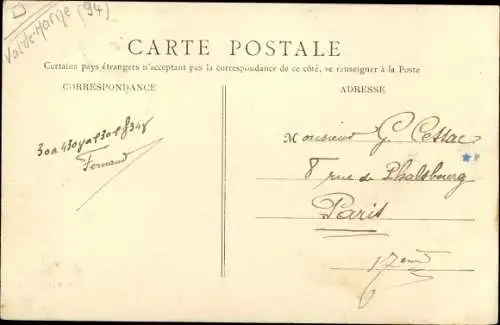 Val de Marne (94)
CARTE POSTALE
Certains pays étrangers n'acceptant pas la correspondance de ce côté, se renseigner à la Poste
CORRESPONDANCE
ADRESSE
Fernand
Monsieur G. Cessac
8 rue de Phalsbourg
Paris
17eme